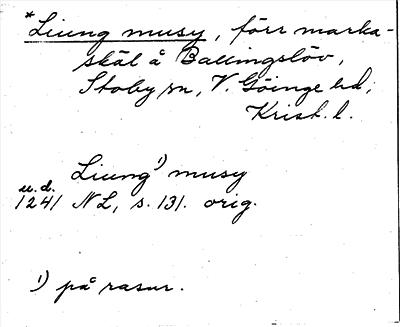 *Liung musy, förr marka-
skäl å Ballingslöv,
Stoby sn, V. Göinge hd,
Krist. l.
Liung¹) musy
u.d.
1241 NL, s. 131. orig.
¹) på rasur.